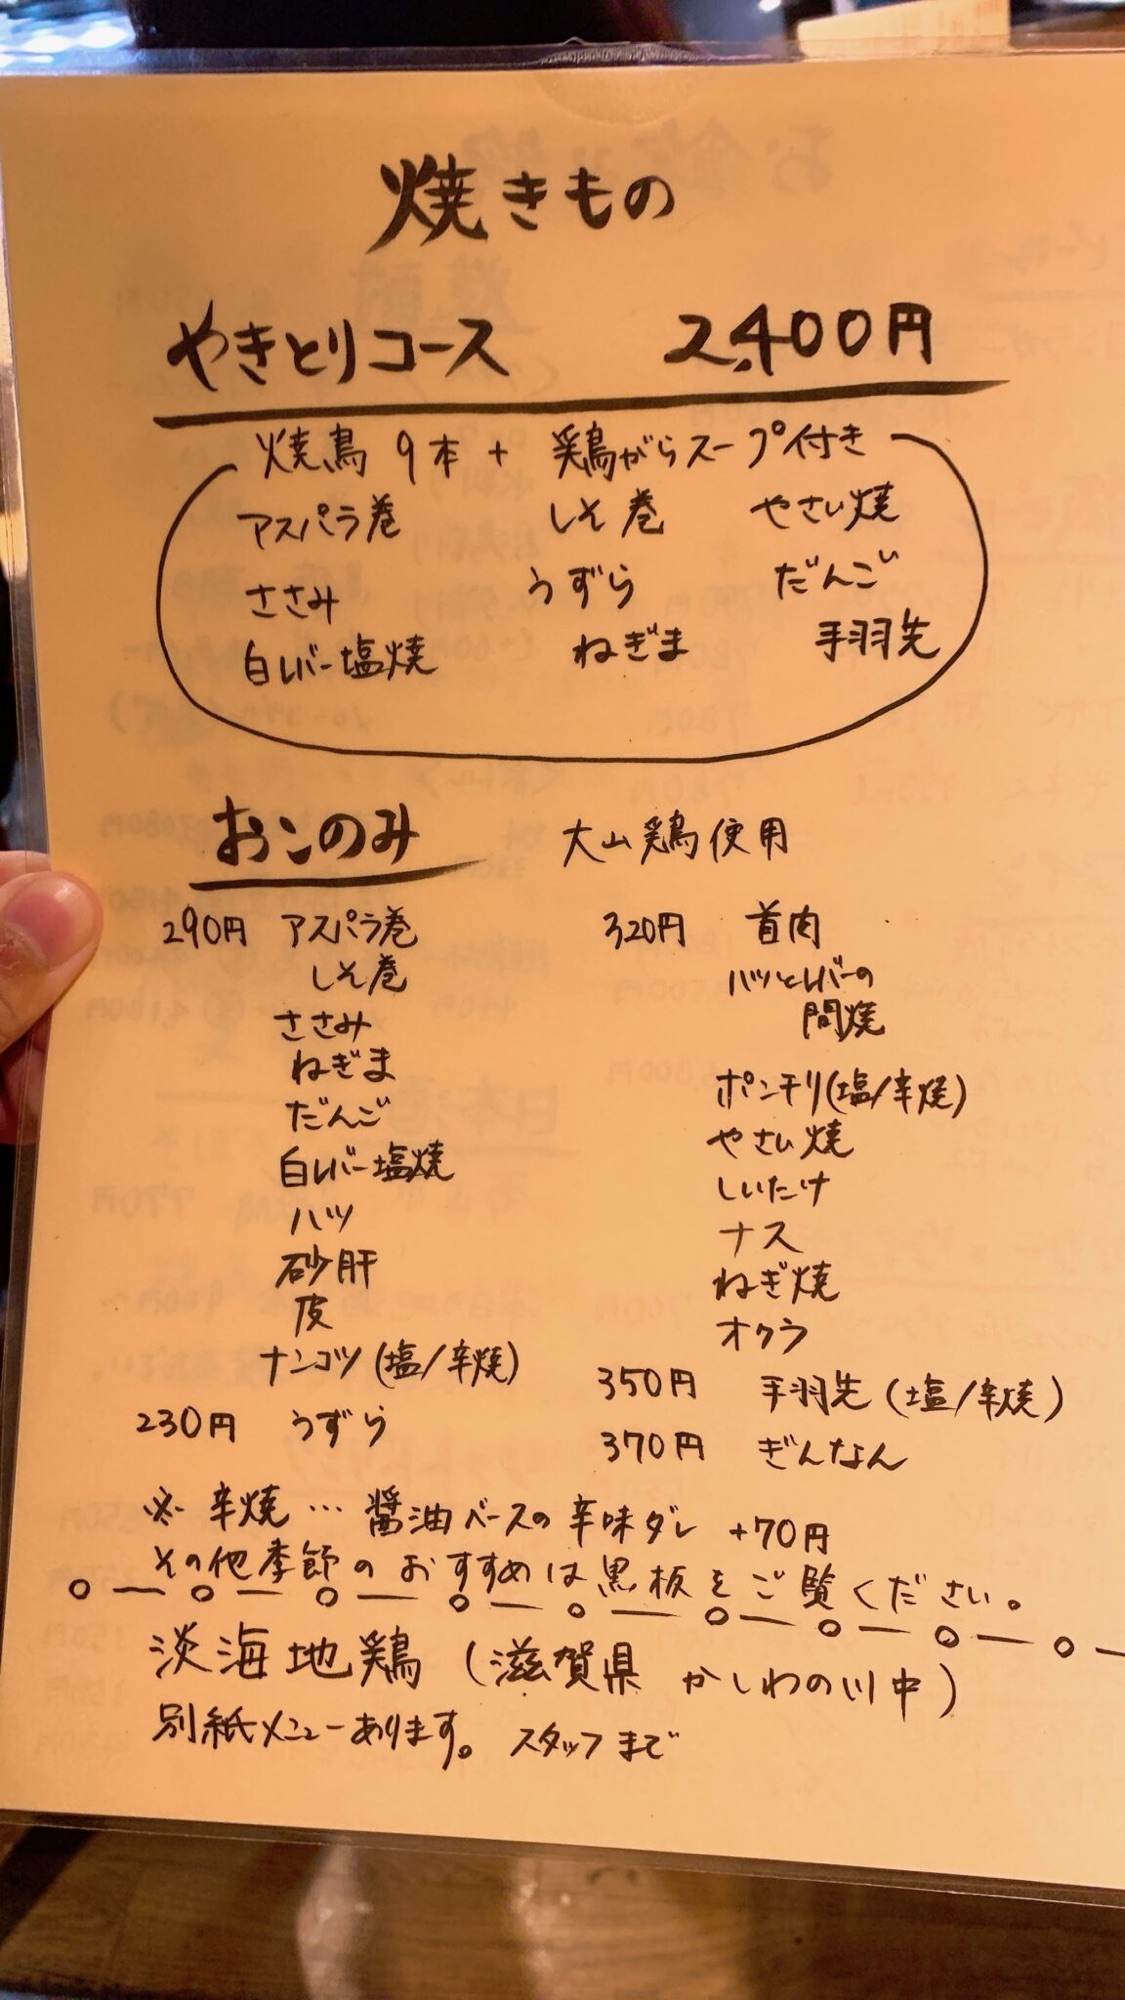 焼きもの
やきとりコース 2,400円
焼鳥 9本 + 鶏がらスープ付き
アスパラ巻 しそ巻 やさい焼
ささみ うずら だんご
白レバー塩焼 ねぎま 手羽先
おこのみ 大山鶏使用
290円 アスパラ巻
しそ巻
ささみ
ねぎま
だんご
白レバー塩焼
ハツ
砂肝
皮
ナンコツ(塩/辛焼)
230円 うずら
320円 首肉
ハツとレバーの
間焼
ボンチリ(塩/辛焼)
やさい焼
しいたけ
ナス
ねぎ焼
オクラ
350円 手羽先(塩/辛焼)
370円 ぎんなん
※辛焼…醤油ベースの辛味ダレ +70円
その他季節のおすすめは黒板をご覧ください。
淡海地鶏(滋賀県 かしわの川中)
別紙メニューあります。スタッフまで